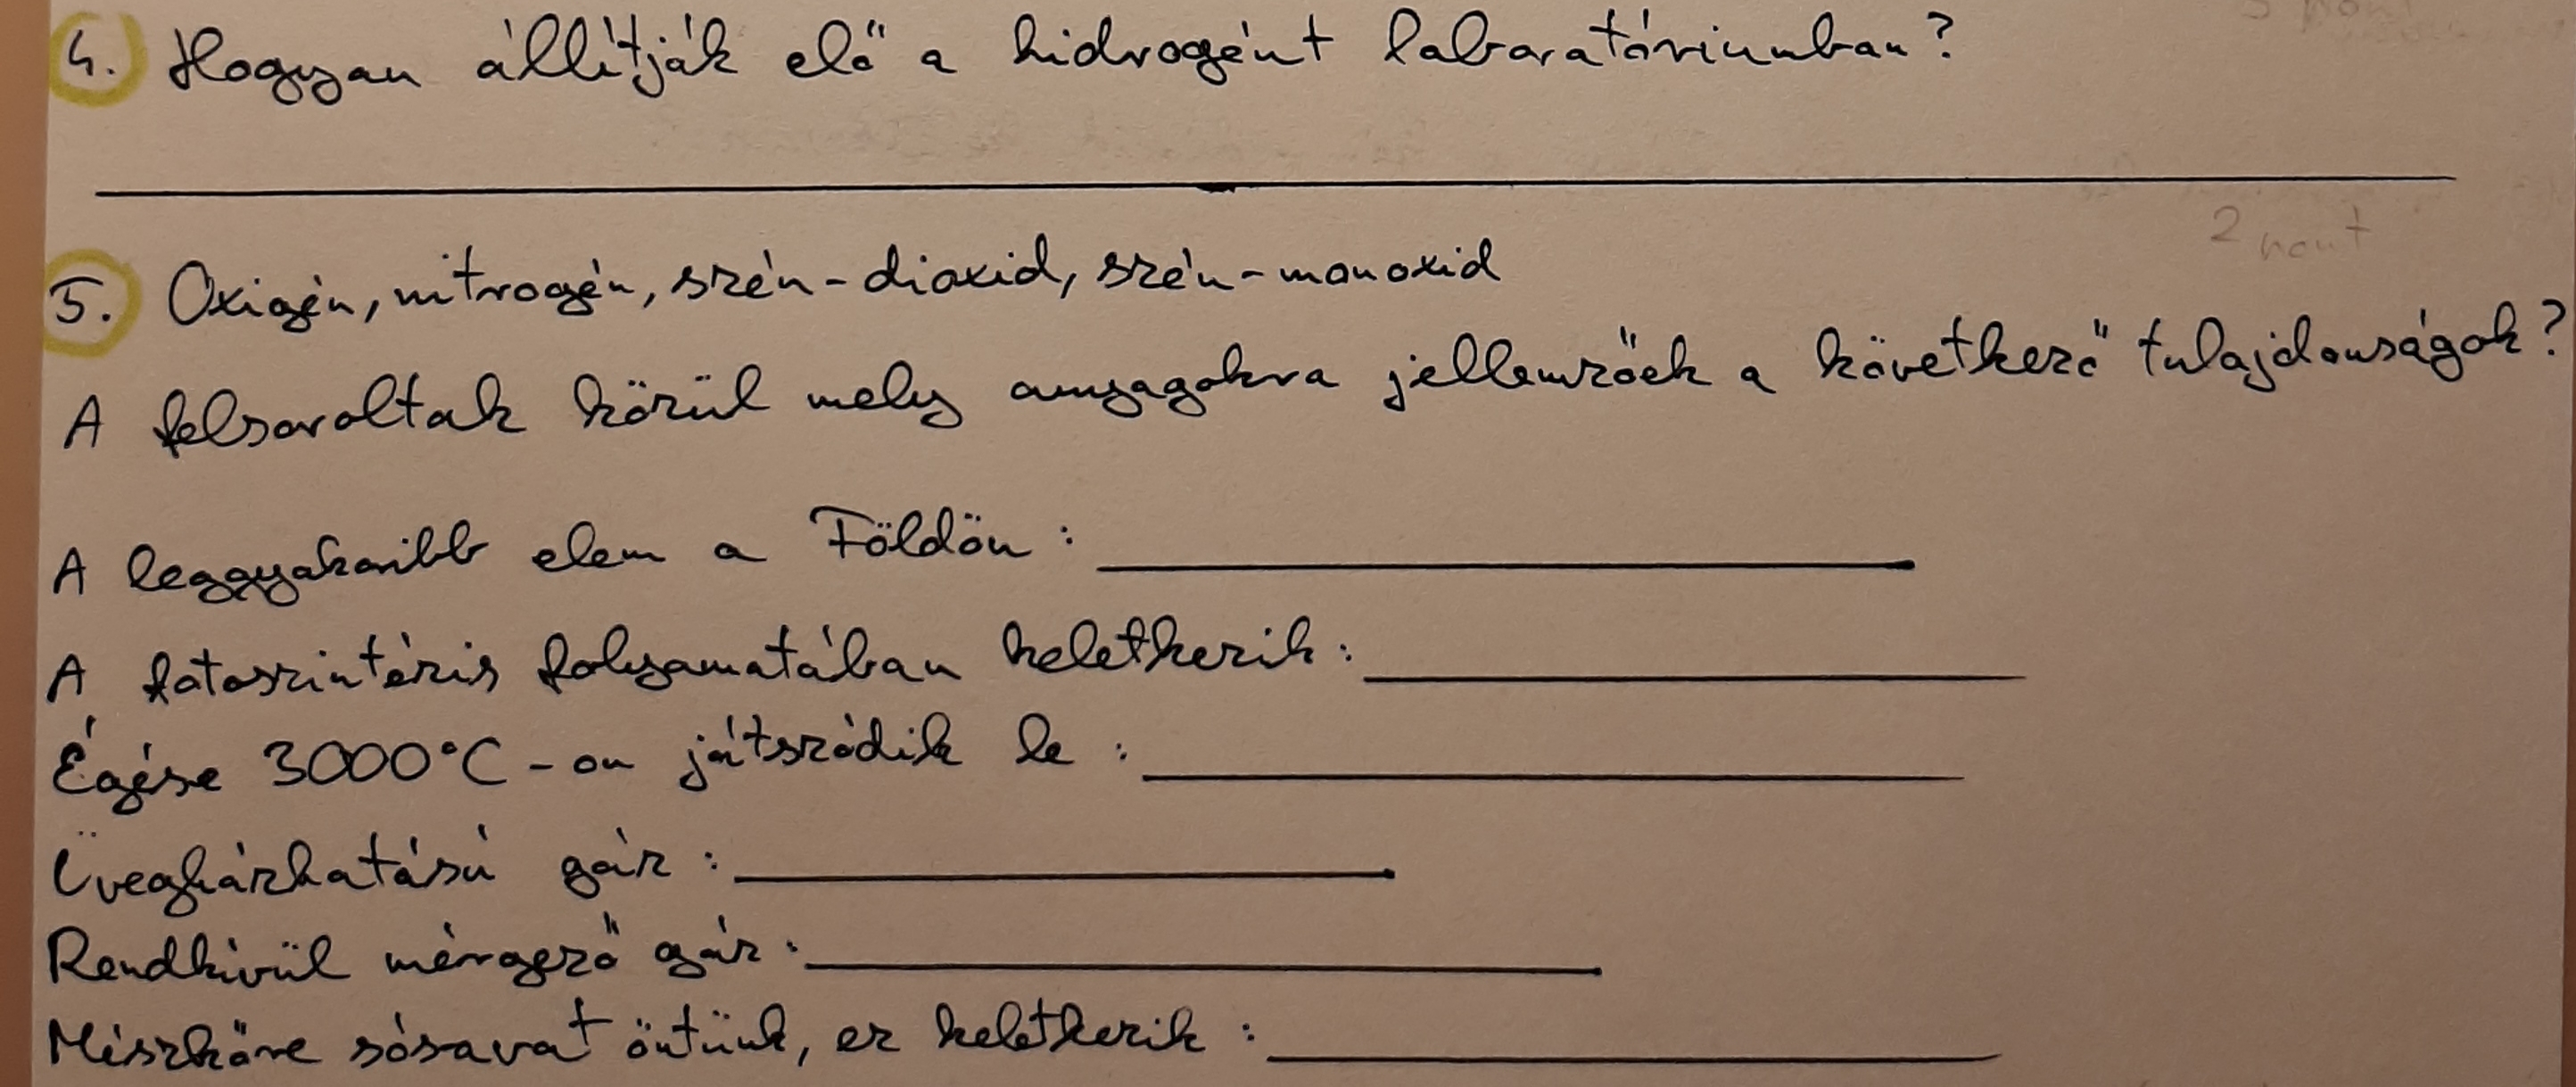 4. Hogyan állítják elő a hidrogént laboratóriumban?
2 pont
5. Oxigén, nitrogén, szén-dioxid, szén-monoxid
A felsoroltak körül mely anyagokra jellemzőek a következő tulajdonságok?
A leggyakoribb elem a Földön:
A fotoszintézis folyamatában keletkezik:
Égése 3000°C-on játszódik le:
Üvegházhatású gáz:
Rendkívül mérgező gáz:
Mészkőre sósavat öntünk, ez keletkezik: